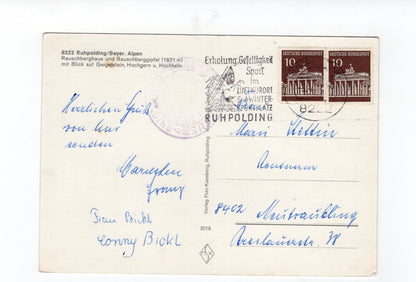 8222 Ruhpolding/Bayer. Alpen
Rauschberghaus und Rauschberggipfel (1671 m)
mit Blick auf Geigelstein, Hochgern u. Hochfelln
Erholung, Geselligkeit
Sport
im
LUFTKURORT
WINTER-
SPORTPLATZ
RUHPOLDING
8222
DEUTSCHE BUNDESPOST
10
DEUTSCHE BUNDESPOST
10
Herzlichen Gruß
von hier
senden
Franz
Bickl
Conny Bickl
Verlag Foto Ruhpolding
2019
8402 Neutraubling
Breslauerstr. 38